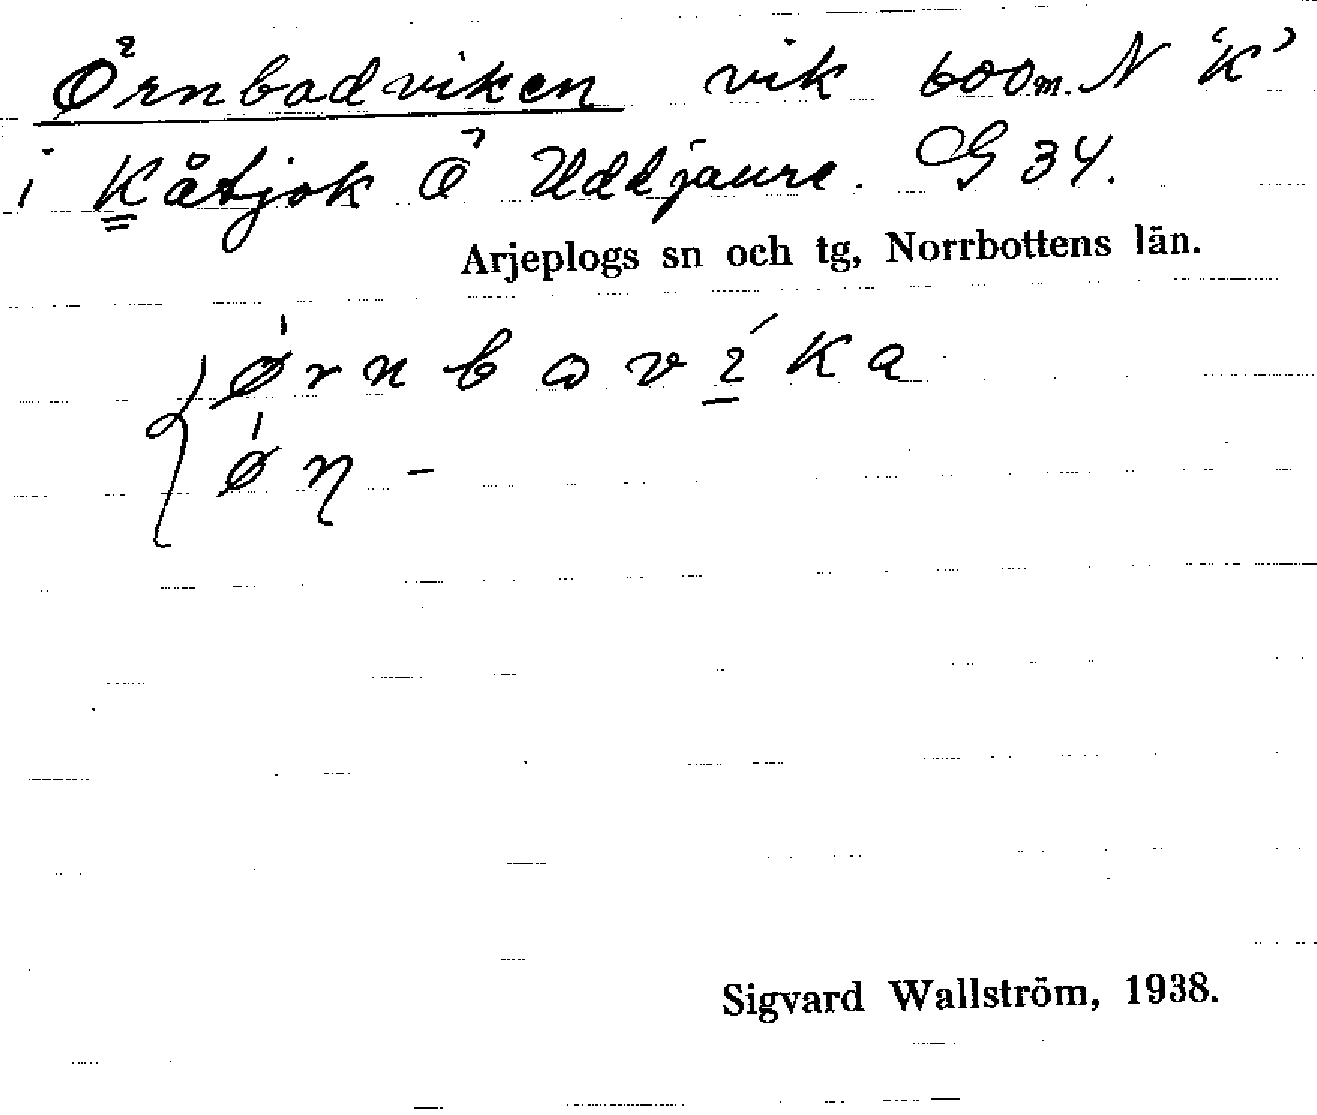 Örnbadviken vik 600m. N 'K'
i Kåtjok Ö Uddjaure. G 34.
Arjeplogs sn och tg, Norrbottens län.
ørnbavika
øn -
Sigvard Wallström, 1938.